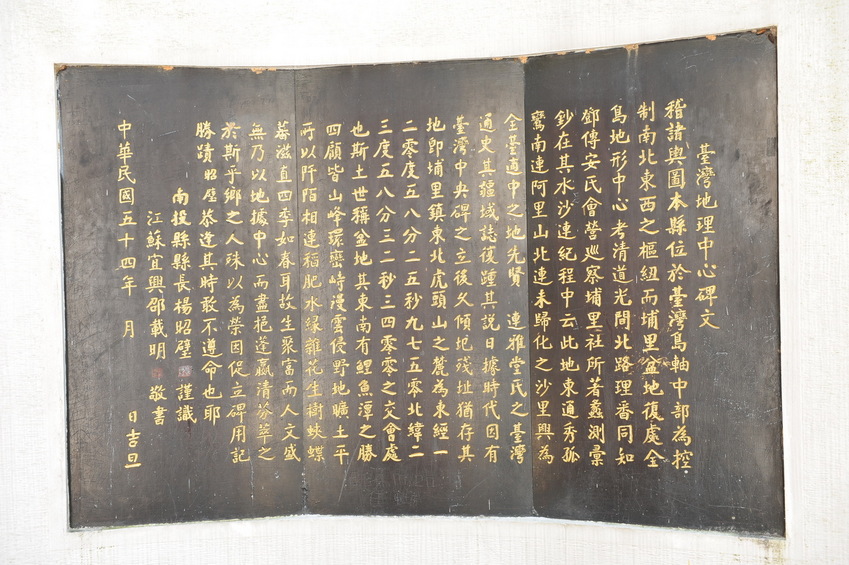 臺灣地理中心碑文
稽諸輿圖本縣位於臺灣島軸中部為控
制南北東西之樞紐而埔里盆地復處全
島地形中心考清道光間北路理番同知
鄧傳安氏會營巡察埔里社所著蠡測彙
鈔在其水沙連紀程中云此地東通秀孤
鸞南連阿里山北連未歸化之沙里興為
全臺適中之地先賢 連雅堂氏之臺灣
通史其疆域誌後踵其說日據時代因有
臺灣中央碑之立後久傾圮殘址猶存其
地卽埔里鎮東北虎頭山之麓為東經一
二零度五八分二五秒九七五零北緯二
三度五八分三二秒三四零零之交會處
也斯土世稱盆地其東南有鯉魚潭之勝
四顧皆山峰環巒峙漫雲侵野地曠土平
所以阡陌相連稻肥水緑雜花生樹蛺蝶
蕃滋直四季如春耳故生聚富而人文盛
無乃以地據中心而盡挹蓬瀛清芬萃之
於斯乎鄉之人殊以為榮因促立碑用記
勝蹟昭璧恭逢其時敢不遵命也耶
南投縣縣長楊昭璧 謹識
江蘇宜興邵載明 敬書
中華民國五十四年 月 日吉旦